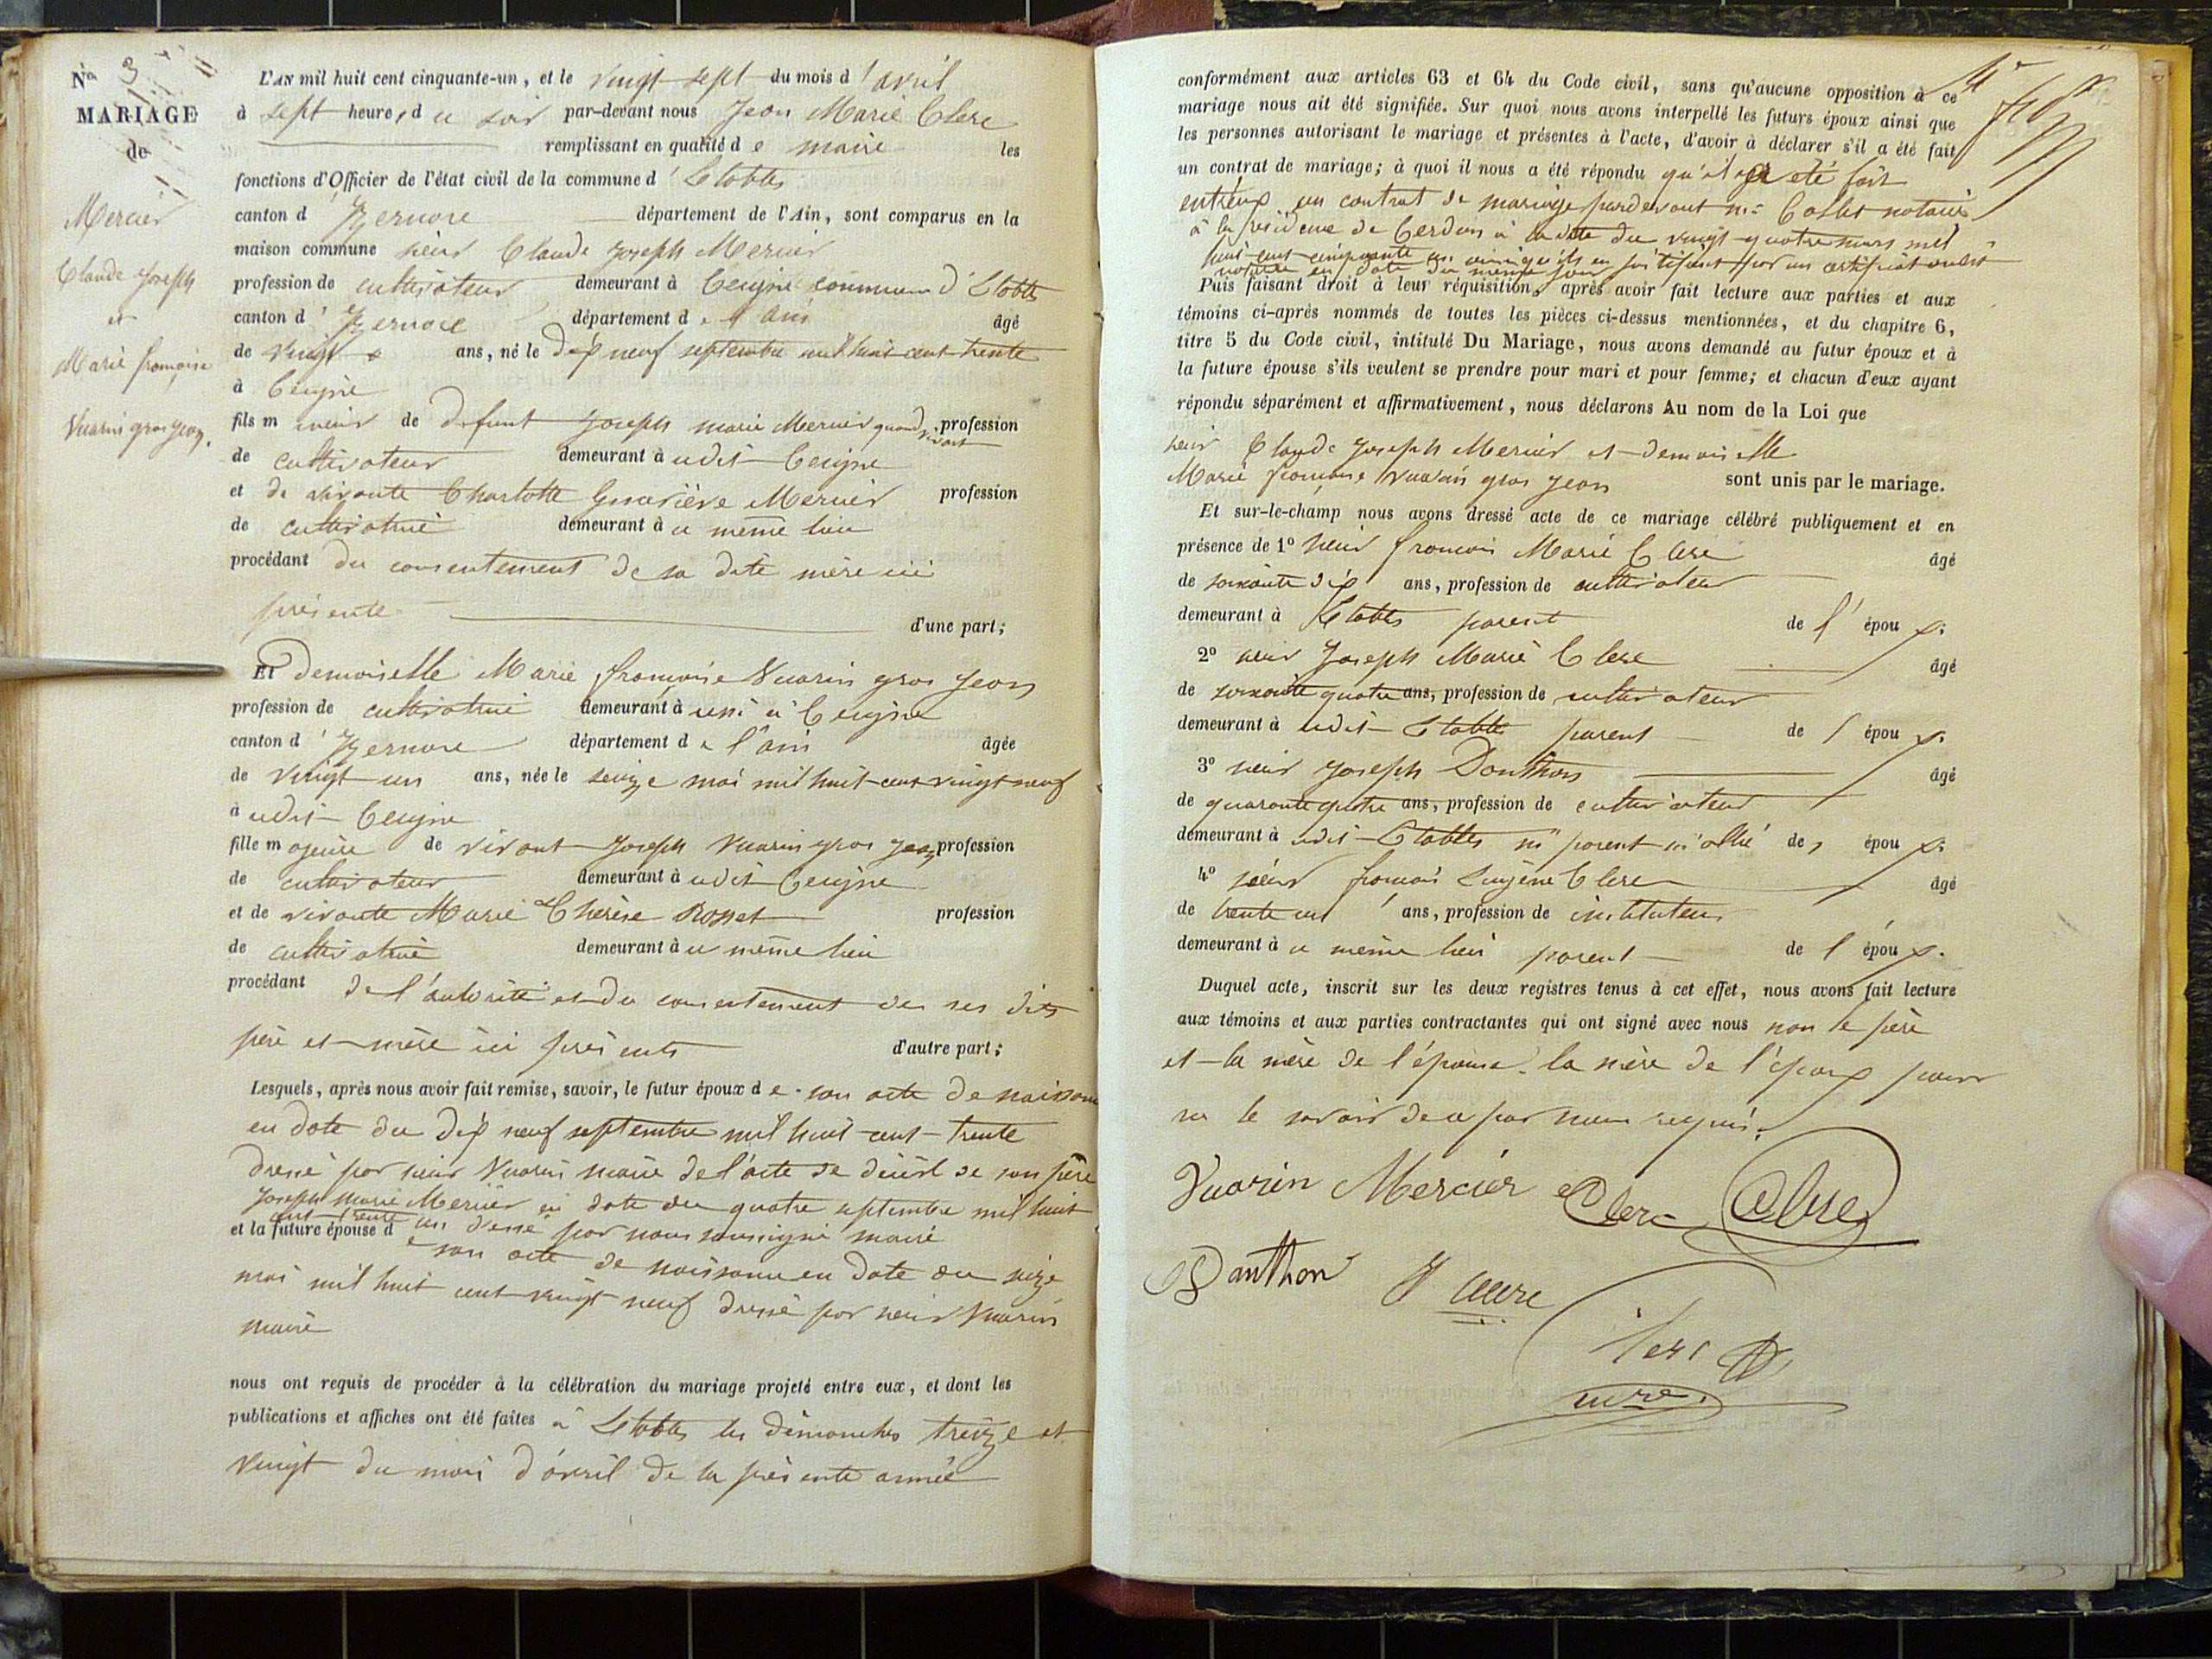 No 3
MARIAGE
de
Mercier
Claude Joseph
et
Marie françoise
Vuarin gros jean.
L'AN mil huit cent cinquante-un, et le vingt sept du mois d'avril
à sept heures du soir par-devant nous Jean Marie Clerc
remplissant en qualité de maire les
fonctions d'Officier de l'état civil de la commune d'Etables
canton d'Izernore département de l'Ain, sont comparus en la
maison commune sieur Claude Joseph Mercier
profession de cultivateur demeurant à Ceigne commune d'Etables
canton d'Izernore département de l'ain âgé
de vingt ans, né le dix neuf septembre mil huit cent trente
à Ceigne
fils mineur de defunt Joseph marie Mercier quand vivant profession
de cultivateur demeurant à udit Ceigne
et de vivante Charlotte Genevière Mercier profession
de cultivatrice demeurant à ce même lieu
procédant du consentement de sa dite mère ici
présente d'une part;
Et demoiselle Marie françoise Vuarin gros jean
profession de cultivatrice demeurant à aussi à Ceigne
canton d'Izernore département de l'ain âgée
de vingt un ans, née le seize mai mil huit cent vingt neuf
à udit Ceigne
fille majeure de vivant Joseph Vuarin gros jean profession
de cultivateur demeurant à udit Ceigne
et de vivante Marie Thérèse Rosset profession
de cultivatrice demeurant à ce même lieu
procédant de l'autorité et du consentement de ses dits
père et mère ici présents d'autre part;
Lesquels, après nous avoir fait remise, savoir, le futur époux de son acte de naissance
en date du dix neuf septembre mil huit cent trente
dressé par sieur Vuarin maire de l'acte de décès de son père
Joseph Marie Mercier en date du quatre septembre mil huit
cent trente un dressé par nous soussigné maire
et la future épouse de son acte de naissance en date du seize
mai mil huit cent vingt neuf dressé par sieur Vuarin
maire
nous ont requis de procéder à la célébration du mariage projeté entre eux, et dont les
publications et affiches ont été faites à Etables les dimanches treize et
vingt du mois d'avril de la présente année
conformément aux articles 63 et 64 du Code civil, sans qu'aucune opposition à ce
mariage nous ait été signifiée. Sur quoi nous avons interpellé les futurs époux ainsi que
les personnes autorisant le mariage et présentes à l'acte, d'avoir à déclarer s'il a été fait
un contrat de mariage; à quoi il nous a été répondu qu'il a été fait
entreux un contrat de mariage pardevant me Collet notaire
à la résidence de Cerdon à la date du vingt quatre mars mil
huit cent cinquante un ainsi qu'ils en justifient par un certificat audit
notaire en date du même jour
Puis faisant droit à leur réquisition, après avoir fait lecture aux parties et aux
témoins ci-après nommés de toutes les pièces ci-dessus mentionnées, et du chapitre 6,
titre 5 du Code civil, intitulé Du Mariage, nous avons demandé au futur époux et à
la future épouse s'ils veulent se prendre pour mari et pour femme; et chacun d'eux ayant
répondu séparément et affirmativement, nous déclarons Au nom de la Loi que
sieur Claude Joseph Mercier et demoiselle
Marie françoise Vuarin gros jean sont unis par le mariage.
Et sur-le-champ nous avons dressé acte de ce mariage célébré publiquement et en
présence de 1o sieur françois Marie Clerc âgé
de soixante dix ans, profession de cultivateur
demeurant à Etables parent de l'époux;
2o sieur Joseph Marie Clerc âgé
de soixante quatre ans, profession de cultivateur
demeurant à udit Etables parent de l'époux;
3o sieur Joseph Donthon âgé
de quarante quatre ans, profession de cultivateur
demeurant à udit Etables ni parent ni allié des époux;
4o sieur françois Eugène Clerc âgé
de trente un ans, profession de instituteur
demeurant à ce même lieu parent de l'époux.
Duquel acte, inscrit sur les deux registres tenus à cet effet, nous avons fait lecture
aux témoins et aux parties contractantes qui ont signé avec nous non le père
et la mère de l'épouse. la mère de l'époux pour
ne le savoir de ce par nous requis.
Vuarin Mercier Clerc Clerc
Danthon
Clerc